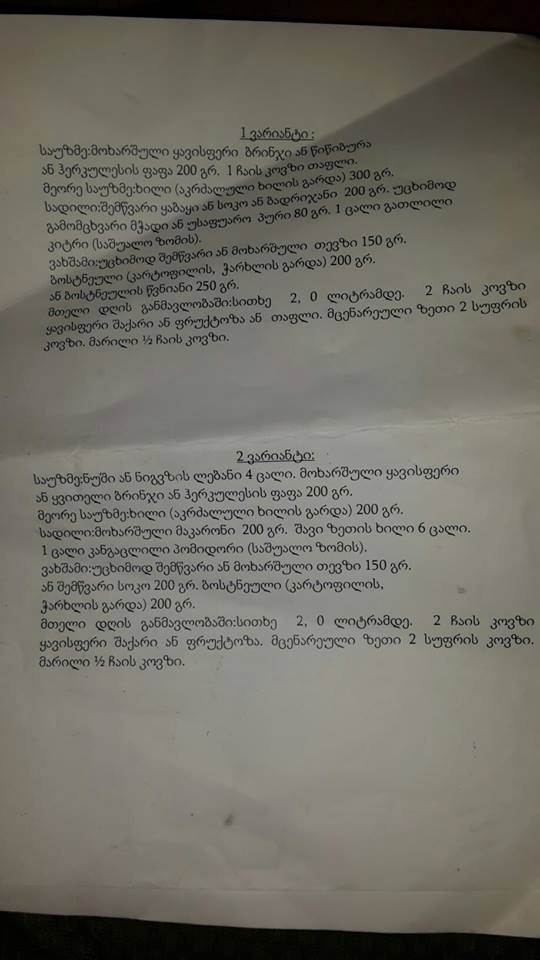 1 ვარიანტი:
საუზმე:მოხარშული ყავისფერი ბრინჯი ან წიწიბურა
ან ჰერკულესის ფაფა 200 გრ. 1 ჩაის კოვზი თაფლი.
მეორე საუზმე:ხილი (აკრძალული ხილის გარდა) 300 გრ.
სადილი:შემწვარი ყაბაყი ან სოკო ან ბადრიჯანი 200 გრ. უცხიმოდ
გამომცხვარი მჭადი ან უსაფუარო პური 80 გრ. 1 ცალი გათლილი
კიტრი (საშუალო ზომის).
ვახშამი:უცხიმოდ შემწვარი ან მოხარშული თევზი 150 გრ.
ბოსტნეული (კარტოფილის, ჭარხლის გარდა) 200 გრ.
ან ბოსტნეულის წვნიანი 250 გრ.
მთელი დღის განმავლობაში:სითხე 2, 0 ლიტრამდე. 2 ჩაის კოვზი
ყავისფერი შაქარი ან ფრუქტოზა ან თაფლი. მცენარეული ზეთი 2 სუფრის
კოვზი. მარილი ½ ჩაის კოვზი.
2 ვარიანტი:
საუზმე:ნუში ან ნიგვზის ლებანი 4 ცალი. მოხარშული ყავისფერი
ან ყვითელი ბრინჯი ან ჰერკულესის ფაფა 200 გრ.
მეორე საუზმე:ხილი (აკრძალული ხილის გარდა) 200 გრ.
სადილი:მოხარშული მაკარონი 200 გრ. შავი ზეთის ხილი 6 ცალი.
1 ცალი კანგაცლილი პომიდორი (საშუალო ზომის).
ვახშამი:უცხიმოდ შემწვარი ან მოხარშული თევზი 150 გრ.
ან შემწვარი სოკო 200 გრ. ბოსტნეული (კარტოფილის,
ჭარხლის გარდა) 200 გრ.
მთელი დღის განმავლობაში:სითხე 2, 0 ლიტრამდე. 2 ჩაის კოვზი
ყავისფერი შაქარი ან ფრუქტოზა. მცენარეული ზეთი 2 სუფრის კოვზი.
მარილი ½ ჩაის კოვზი.